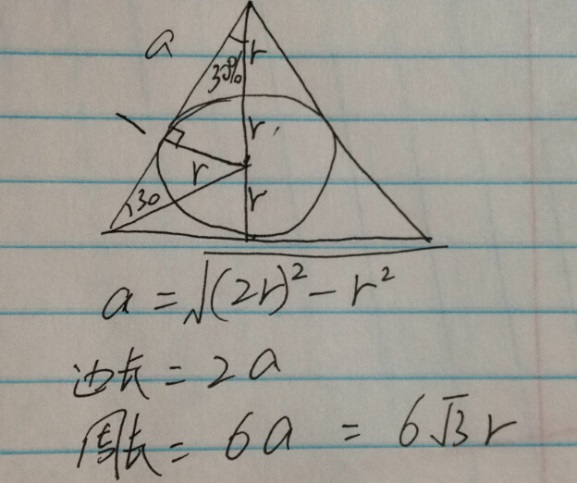 a
r
30°
r
r
r
30
a = √(2r)² - r²
边长 = 2a
周长 = 6a = 6√3 r